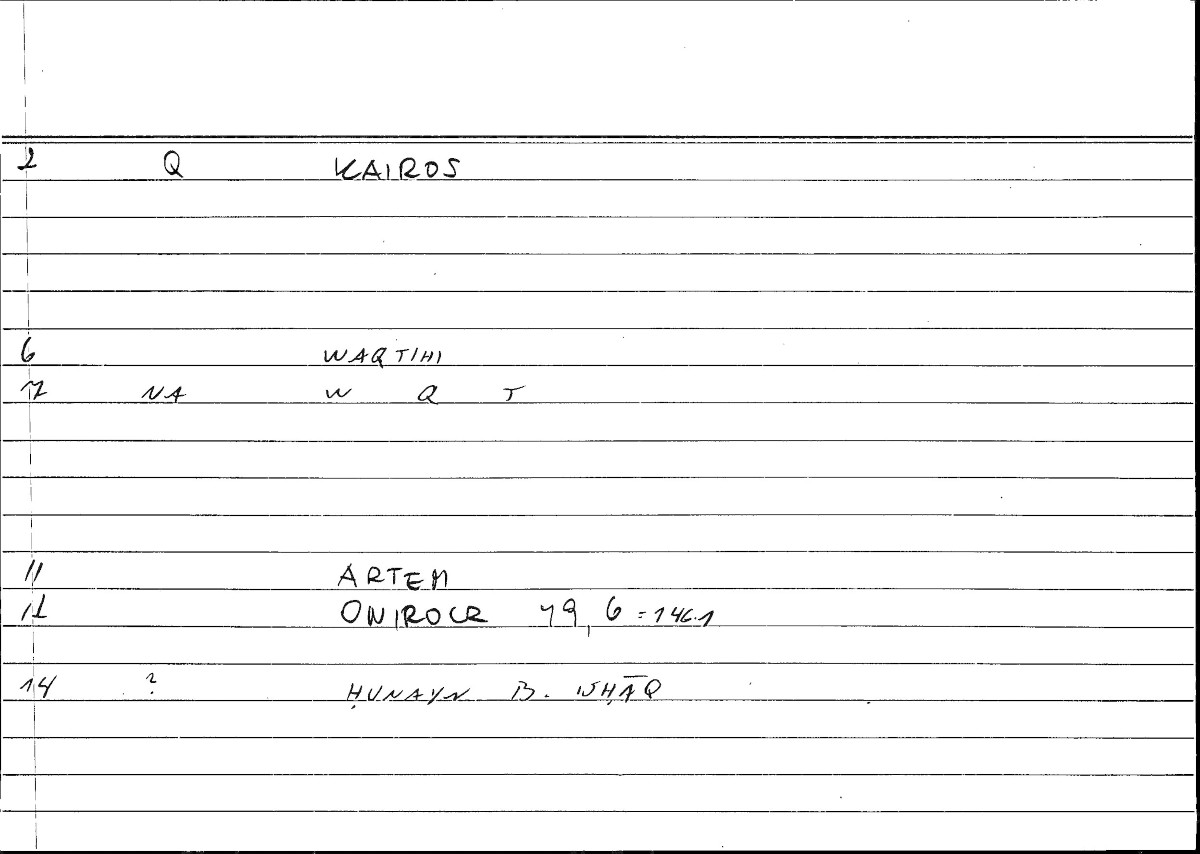 2 Q KAIROS
6 WAQTIHI
7 NA W Q T
11 ARTEM
12 ONIROCR 79, 6 = 146.1
14 ? ḤUNAYN B. ISḤĀQ